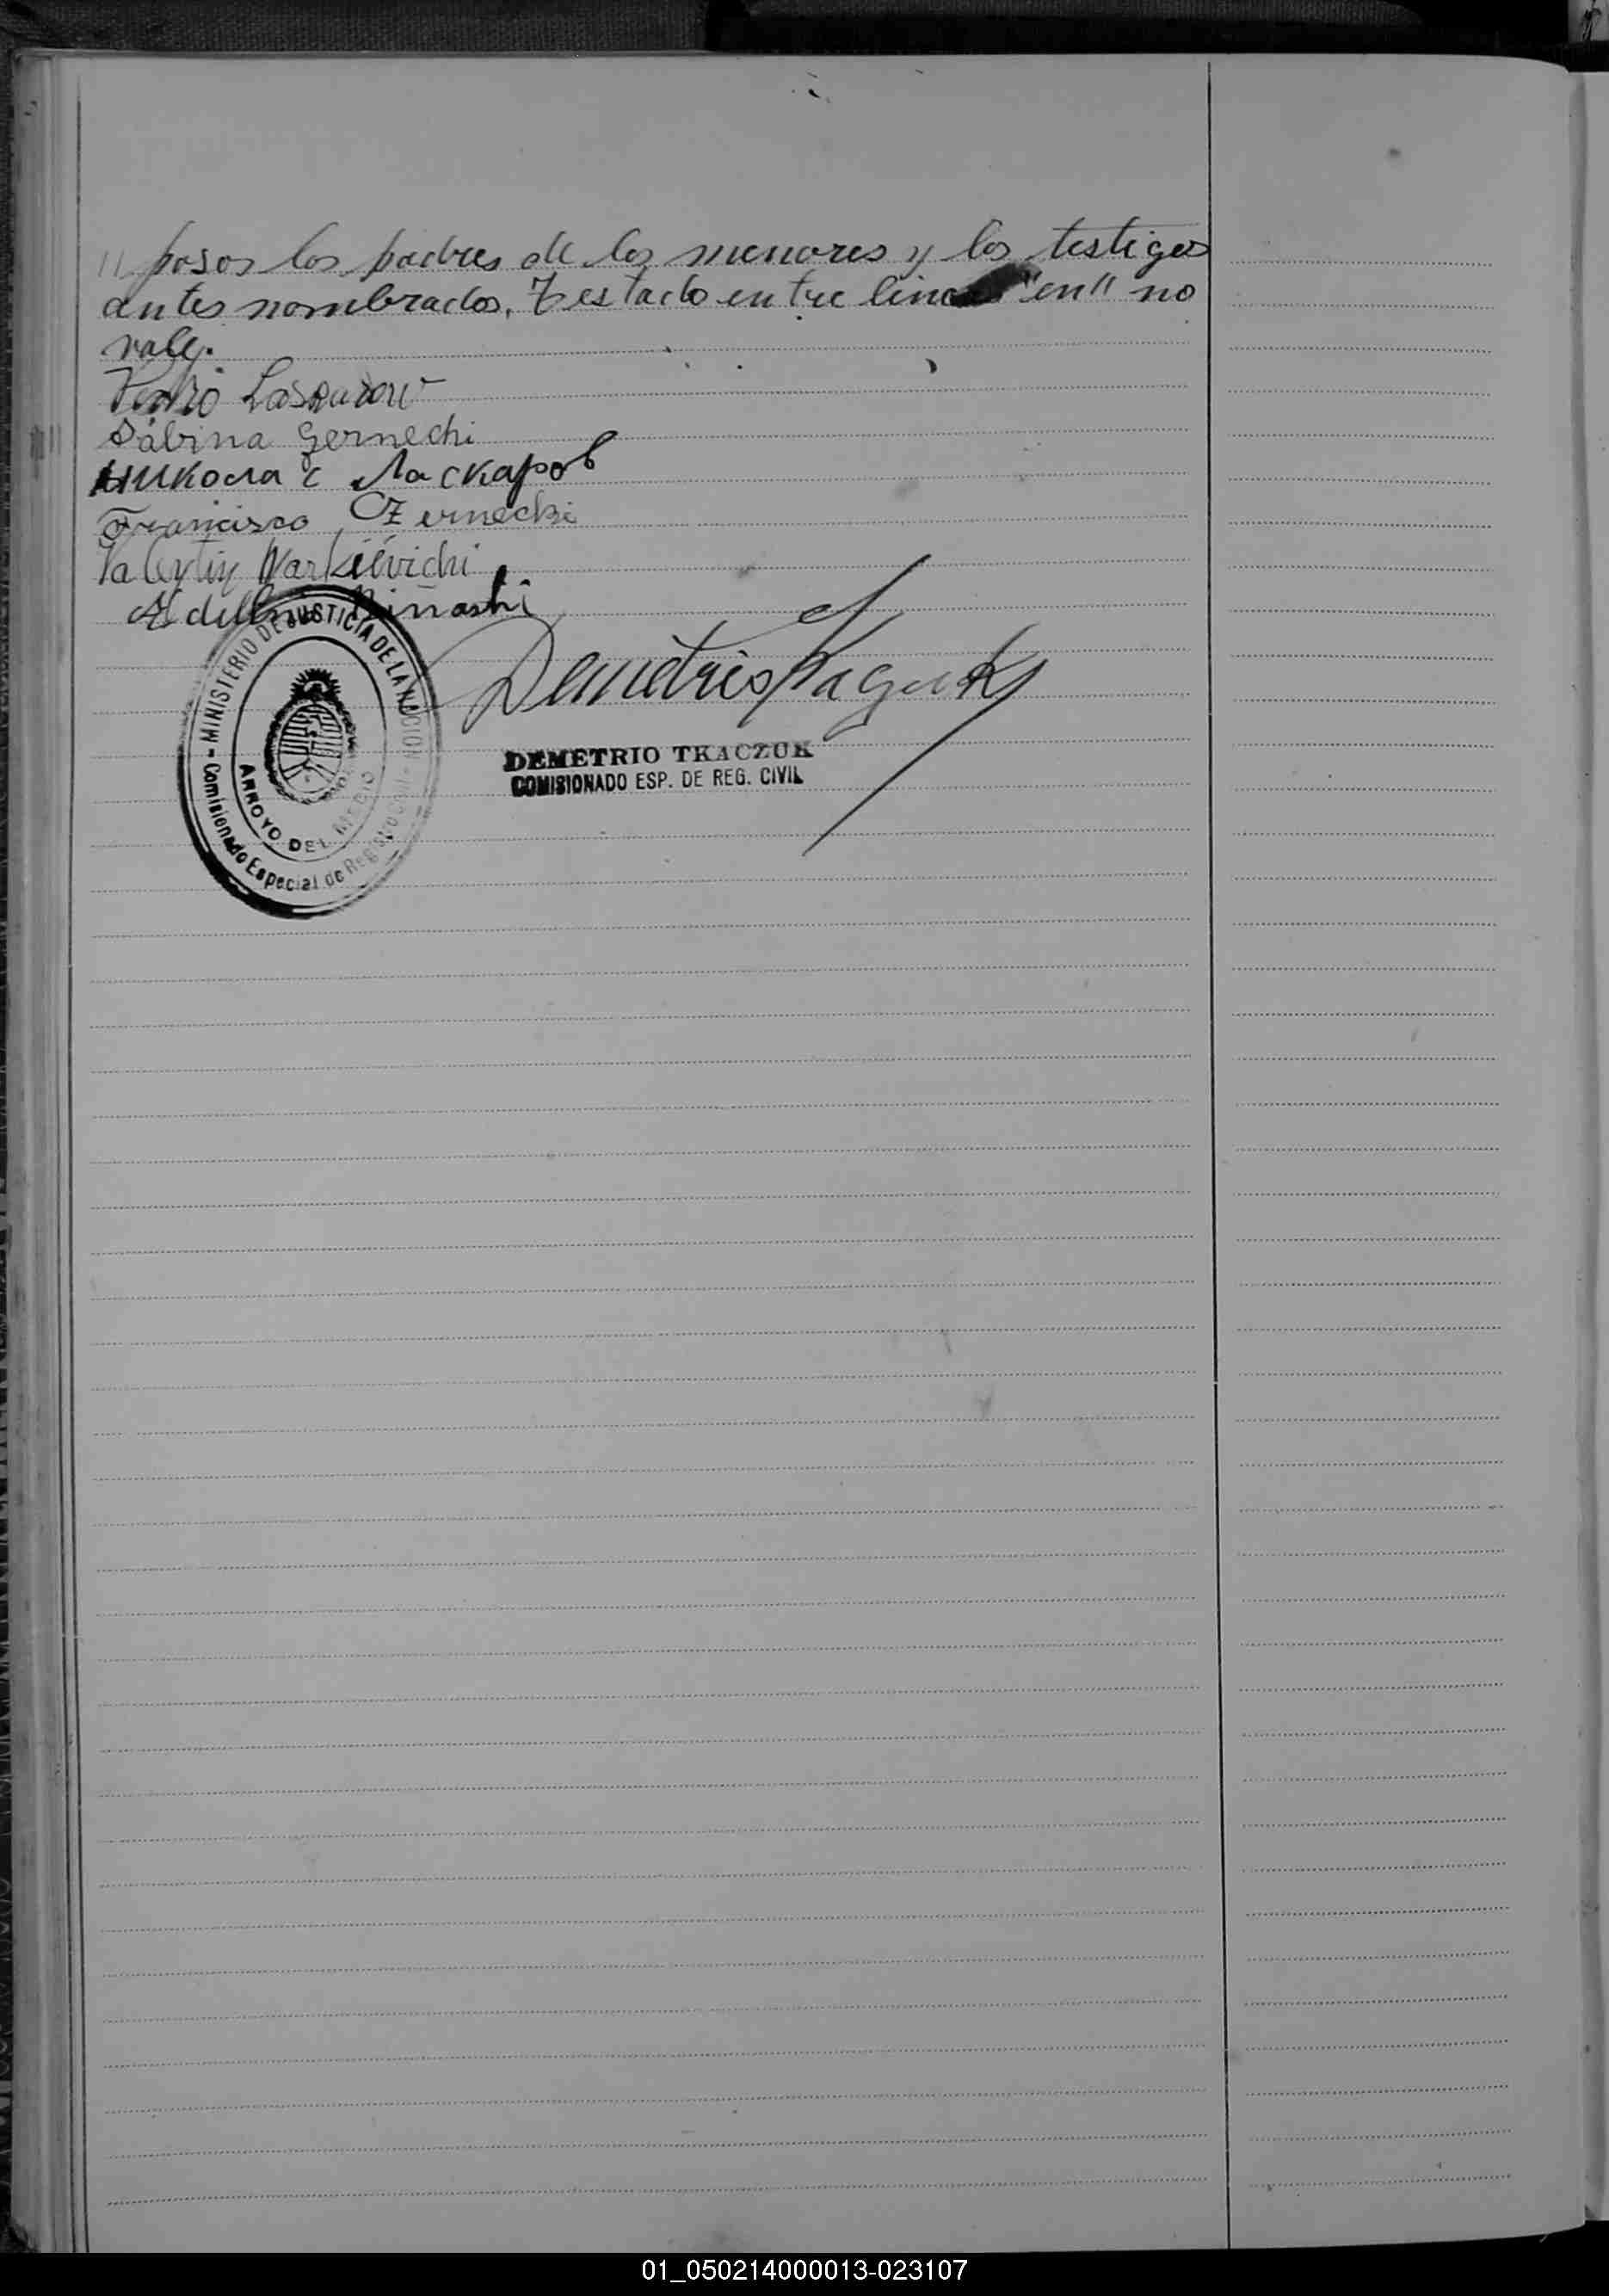 // posos los padres de los menores y los testigos
antes nombrados. Testado entre lineas "en" no
vale.
Pedro Lascarow
Sabina Gernechi
Никола с Ласкаров
Francisco Czernecki
Valentin Markievichi
MINISTERIO DE JUSTICIA DE LA NACION
Comisionado Especial de Reg. Civil
ARROYO DEL MEDIO
DEMETRIO TKACZUK
COMISIONADO ESP. DE REG. CIVIL
01_050214000013-023107